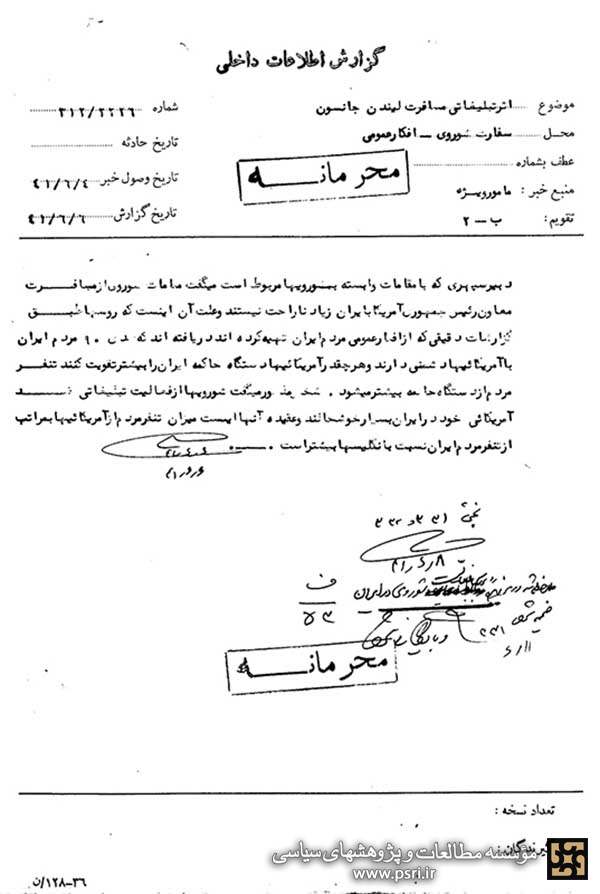 گزارش اطلاعات داخلی
موضوع اثر تبلیغاتی مسافرت لیندن جانسون شماره ۳۱۲/۲۲۲۶
محل سفارت شوروی – افکار عمومی تاریخ حادثه
عطف بشماره محرمانه تاریخ وصول خبر ۴۱/۶/۴
منبع خبر : مامور ویژه تاریخ گزارش ۴۱/۶/۶
تقویم : ب – ۲
دبیر سپهری که با مقامات وابسته بشورویها مربوط است میگفت مقامات شوروی از مسافرت
معاون رئیس جمهوری آمریکا بایران زیاد ناراحت نیستند وعلت آن اینست که روسها طبق
گزارشات دقیقی که از افکار عمومی مردم ایران تهیه کرده اند دریافته اند که ۹۰ مردم ایران
با آمریکائیها دشمنی دارند وهر چقدر آمریکائیها دستگاه حاکمه ایران را بیشتر تقویت کنند تنفر
مردم از دستگاه حاکمه بیشتر میشود . شخص مزبور میگفت شورویها از فعالیت تبلیغاتی ضد
آمریکائی خود در ایران بسیار خوشحالند وعقیده آنها اینست میزان تنفر مردم از آمریکائیها بمراتب
از تنفر مردم ایران نسبت بانگلیسها بیشتر است .
بخش ۳۳۱ و ۳۳۲
شوروی در ایران
ف
۵۳
ضمیمه شود
۳۳۱
۶/۱۱
محرمانه
تعداد نسخه :
گیرندگان :
موسسه مطالعات و پژوهشهای سیاسی
www.psri.ir
۱۲۸-۳۶/ن